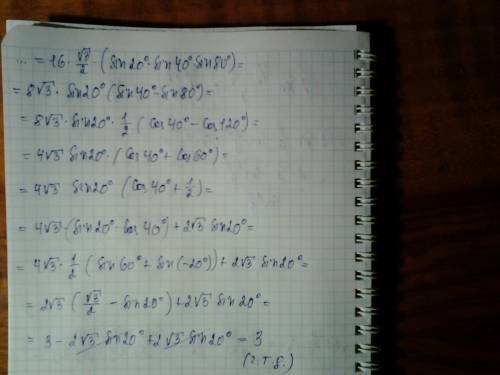 ... = 16 · √3/2 · (sin20°·sin40°·sin80°) =
= 8√3 · sin20° (sin40°·sin80°) =
= 8√3 · sin20° · 1/2 (cos40° − cos120°) =
= 4√3 sin20° · (cos40° + cos60°) =
= 4√3 sin20° (cos40° + 1/2) =
= 4√3 · (sin20° · cos40°) + 2√3 sin20° =
= 4√3 · 1/2 (sin60° + sin(−20°)) + 2√3 sin20° =
= 2√3 (√3/2 − sin20°) + 2√3 sin20° =
= 3 − 2√3 sin20° + 2√3 sin20° = 3
(ч.т.д.)